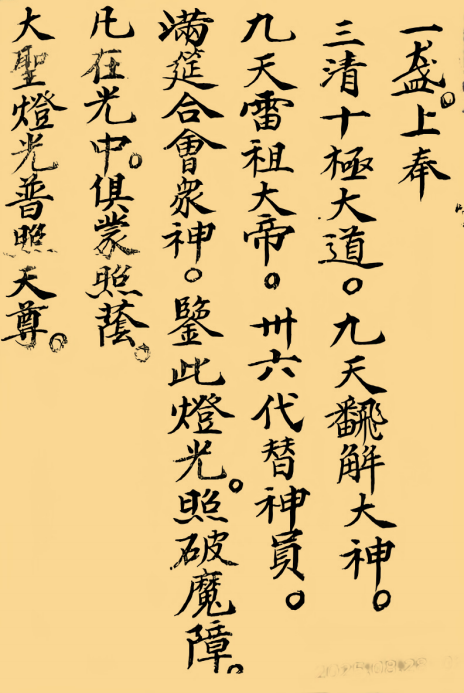 一盞。上奉
三清十極大道。九天飜解大神。
九天雷祖大帝。卅六代替神員。
滿筵合會衆神。鑒此燈光。照破魔障。
凡在光中。俱蒙照蔭。
大聖燈光普照天尊。